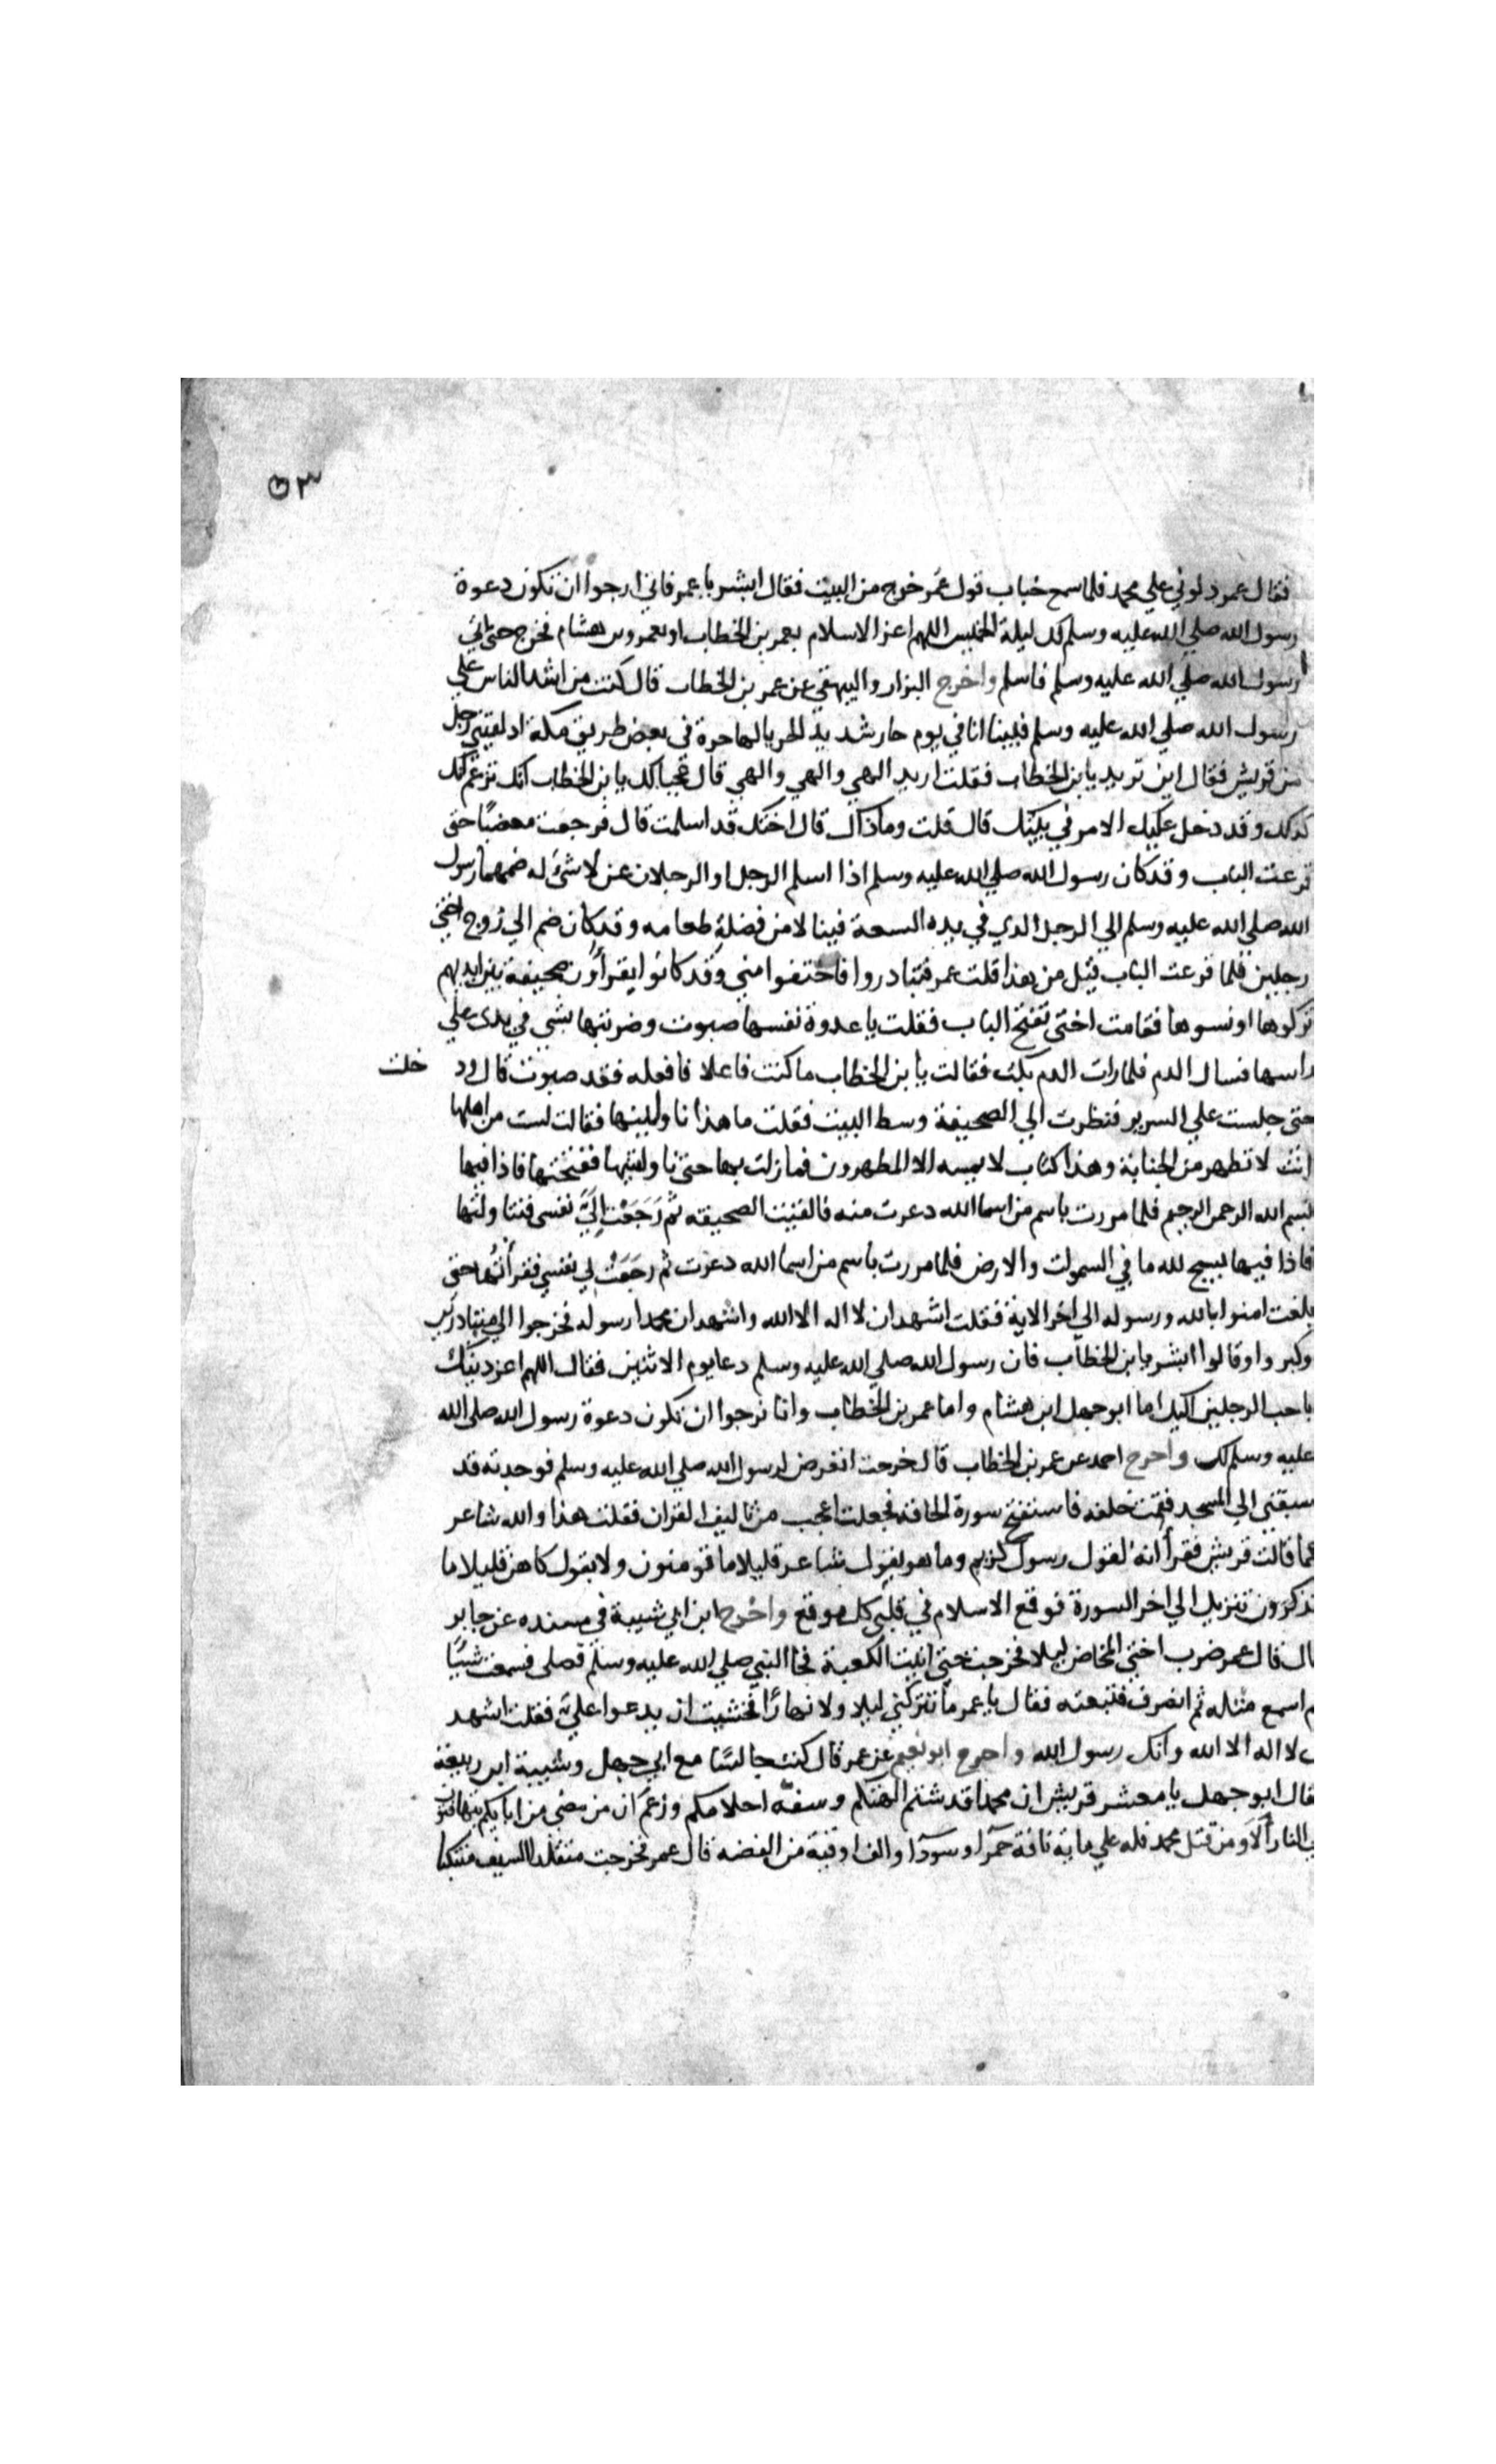 ٣
فقال عمر دلوني علي محمد فلما سمع خباب قول عمر خرج من البيت فقال ابشر يا عمر فاني ارجوا ان تكون دعوة
رسول الله صلي الله عليه وسلم لك ليلة الخميس اللهم اعز الاسلام بعمر بن الخطاب او بعمرو بن هشام فخرج حتي اتي
رسول الله صلي الله عليه وسلم فاسلم واخرج البزار والبيهقي عن عمر بن الخطاب قال كنت من اشد الناس علي
رسول الله صلي الله عليه وسلم فبينا انا في يوم حار شديد الحر بالهاجرة في بعض طريق مكة اذ لقيني رجل
من قريش فقال اين تريد يا بن الخطاب فقلت اريد الهي والهي والهي قال عجبا لك يا بن الخطاب انك تزعم انك
كذلك وقد دخل عليك الامر في بيتك قال قلت وما ذاك قال اختك قد اسلمت قال فرجعت مغضبًا حتي
قرعت الباب وقد كان رسول الله صلي الله عليه وسلم اذا اسلم الرجل او الرجلان عن لا شئ له ضمهما رسول
الله صلي الله عليه وسلم الي الرجل الذي في يده السعة فينالا من فضلة طعامه وقد كان ضم الي زوج اختي
رجلين فلما قرعت الباب قيل من هذا قلت عمر فتبادروا فاختفوا مني وقد كانوا يقرأون صحيفة بين ايديهم
تركوها او نسوها فقامت اختي تفتح الباب فقلت يا عدوة نفسها صبوت وضربتها بشي في يدي علي
راسها فسال الدم فلما رات الدم بكت فقالت يا بن الخطاب ما كنت فاعلا فافعله فقد صبوت قال ود خلت
حتي جلست علي السرير فنظرت الي الصحيفة وسط البيت فقلت ما هذا ناولينها فقالت لست من اهلها
انت لا تطهر من الجنابة وهذا كتاب لا يمسه الا المطهرون فما زلت بها حتي ناولتنيها ففتحتها فاذا فيها
بسم الله الرحمن الرحيم فلما مررت باسم من اسما الله دعرت منه فالقيت الصحيفه ثم رَجَعَتْ اِلَيَّ نفسي فتناولتها
فاذا فيها يسبح لله ما في السموات والارض فلما مررت باسم من اسما الله دعرت ثم رجَعَتْ لي نفسي فقرأتُها حتي
بلغت امنوا بالله ورسوله الي اخر الاية فقلت اشهد ان لا اله الا الله واشهد ان محمدا رسوله فخرجوا الي متبادرين
وكبروا وقالوا ابشر يا بن الخطاب فان رسول الله صلي الله عليه وسلم دعا يوم الاثنين فقال اللهم اعز دينك
باحب الرجلين اليك اما ابو جهل ابن هشام واما عمر بن الخطاب وانا نرجوا ان تكون دعوة رسول الله صلي الله
عليه وسلم لك واخرج احمد عن عمر بن الخطاب قال خرجت اتعرض لرسول الله صلي الله عليه وسلم فوجدته قد
سبقني الي المسجد فقمت خلفه فاستفتح سورة الحاقة فجعلت اعجب من تاليف القران فقلت هذا والله شاعر
كما قالت قريش فقرأ انه لقول رسول كريم وما هو بقول شاعر قليلا ما تومنون ولا بقول كاهن قليلا ما
تذكرون تنزيل الي اخر السورة فوقع الاسلام في قلبي كل موقع واخرج ابن ابي شيبة في مسنده عن جابر
قال قال عمر ضرب اختي المخاض ليلا فخرجت حتي اتيت الكعبة فجا النبي صلي الله عليه وسلم فصلي فسمعت شيئًا
لم اسمع مثله ثم انصرف فتبعته فقال يا عمر ما تتركني ليلا ولا نهارًا فخشيت ان يدعوا عليَّ فقلت اشهد
ان لا اله الا الله وانك رسول الله واخرج ابو نعيم عن عمر قال كنت جالسًا مع ابي جهل وشيبة ابن ربيعة
فقال ابو جهل يا معشر قريش ان محمدا قد شتم الهتكم وسفّه احلامكم وزعم ان من مضي من ابايكم يتهافتون
في النار ألا ومن قتل محمد فله علي ماية ناقة حمرا وسودآ والف اوقية من الفضه قال عمر فخرجت متقلدا السيف متنكبا